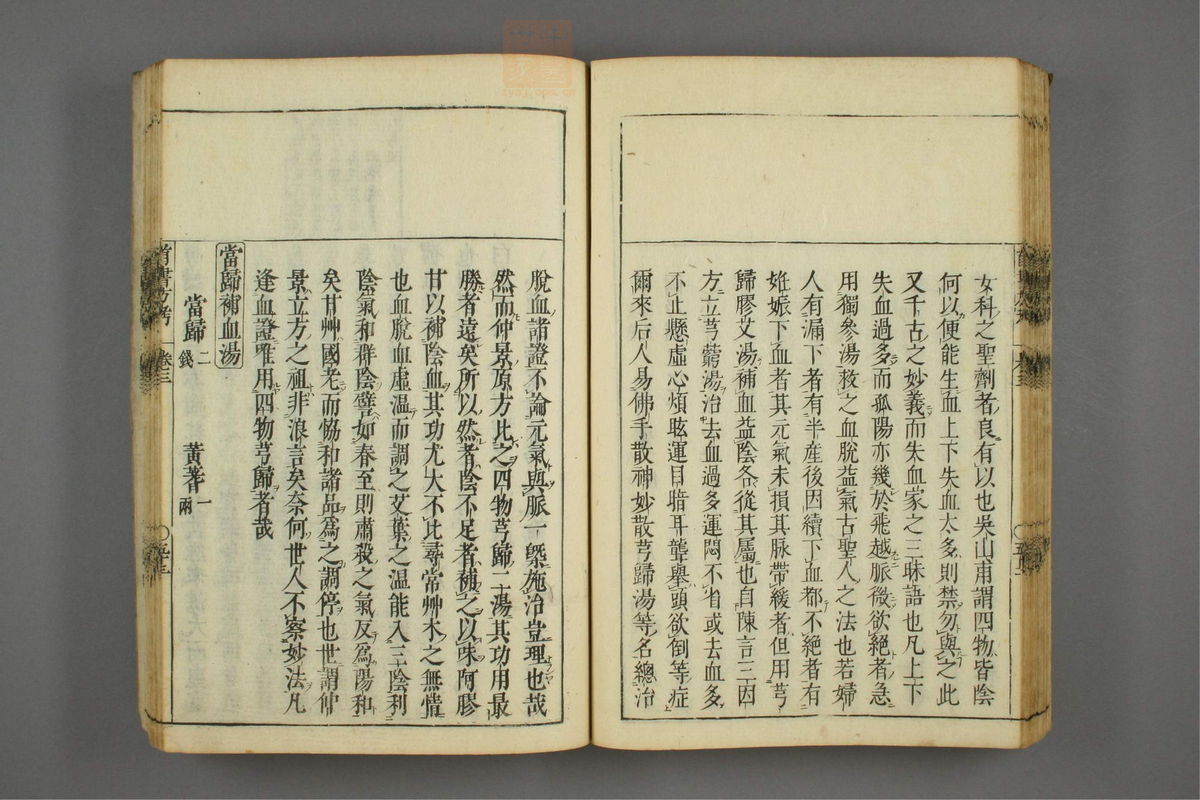 女科之聖劑者良有以也吳山甫謂四物皆陰
何以便能生血上下失血太多則禁勿與之此
又千古之妙義而失血家之三昧語也凡上下
失血過多而孤陽亦幾於飛越脈微欲絕者急
用獨參湯救之血脫益氣古聖人之法也若婦
人有漏下者有半產後因續下血都不絕者有
妊娠下血者其元氣未損其脉帶緩者但用芎
歸膠艾湯補血益陰各從其屬也自陳言三因
方立芎藭湯治去血過多運悶不省或去血多
不止懸虛心煩眩運目暗耳聾舉頭欲倒等症
爾來后人易佛手散神妙散芎歸湯等名總治
脫血諸證不論元氣與脈一槩施治豈理也哉
然而仲景原方比之四物芎歸二湯其功用最
勝者遠矣所以然者陰不足者補之以味阿膠
甘以補陰血其功尤大不比尋常艸木之無情
也血脫血虛溫而調之艾葉之溫能入三陰利
陰氣和群陰譬如春至則肅殺之氣反為陽和
矣甘艸國老而恊和諸品為之調停也世謂仲
景立方之祖非浪言矣奈何世人不察妙法凡
逢血證唯用四物芎歸者哉
當歸補血湯
當歸二錢 黃芪一兩
首書方考 卷三